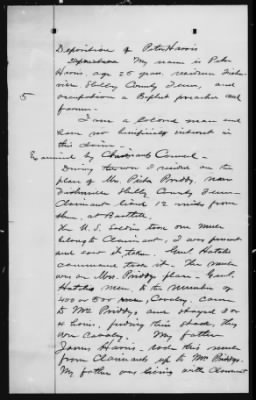 Deposition of Peter Harris
My name is Peter
Harris, age 25 years, residence Fisher-
ville Shelby County Tenn, and
occupation a Baptist preacher and
farmer.
5
I am a colored man and
have no beneficial interest in
this claim.
Examined by Claimants Counsel.
During the war I resided on the
place of Mrs Priddy, near
Fisherville Shelby County Tenn
Claimant lived 12 miles from
there, at Bartlett.
The U.S. Soldiers took one mule
belong to Claimant, I was present
and saw it taken. Genl Hatch's
command took it. The mule
was on Mrs. Priddy place. Genl.
Hatch's men, to the number of
400 or 500 men, Cavalry, came
to Mrs Priddy's, and stayed 3 or
4 hours, feeding their stock, they
were Cavalry. My father,
James Harris, rode this mule
from Claimants up to Mrs Priddys.
My father was living with Claimant